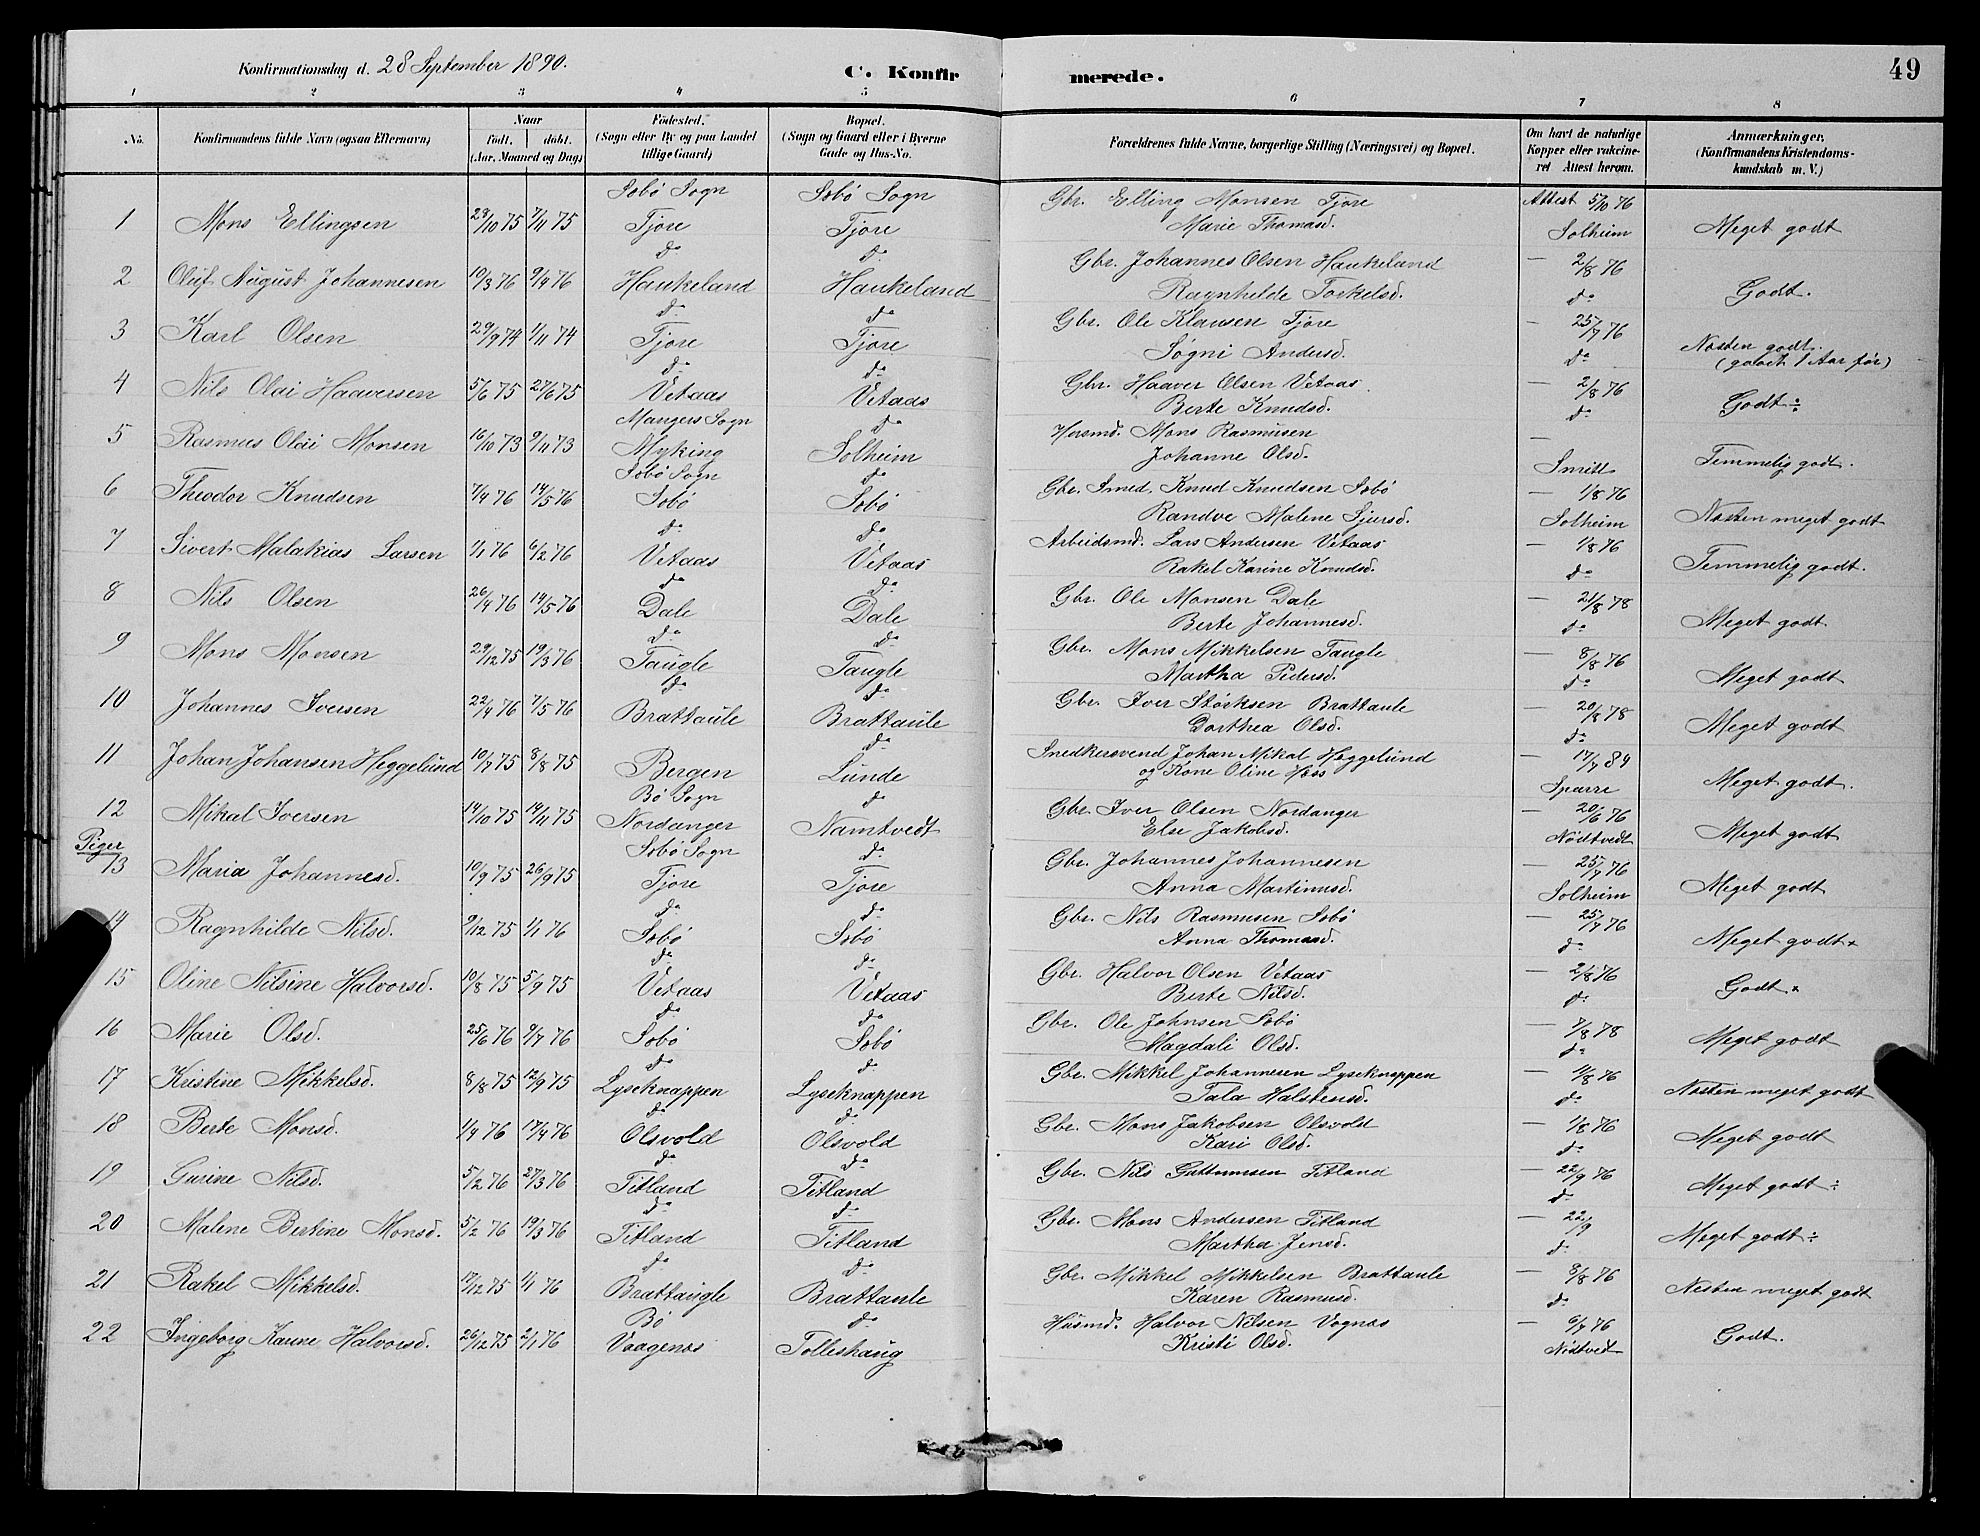 Konfirmationsdag d. 28 September 1890.
C. Konfirmerede.
49
1 2 3 4 5 6 7 8
No. Konfirmandens fulde Navn (ogsaa Efternavn) Naar født. døbt. (Aar, Maaned og Dag) Fødested. (Sogn eller By og paa Landet tillige Gaard) Bopæl. (Sogn og Gaard eller i Byerne Gade og Hus-No. Forældrenes fulde Navne, borgerlige Stilling (Næringsvei) og Bopæl. Om havt de naturlige Kopper eller vakcineret Attest herom. Anmærkninger. (Konfirmandens Kristendomskundskab m. V.)
Sæbø Sogn Sæbø Sogn Gbr. Elling Monsen Tjore Attest 5/10 76
1 Mons Ellingsen 28/10 75 7/11 75 Tjore Tjore Marie Thomasd. Solheim Meget godt
do do Gbr. Johannes Olsen Haukeland — 2/8 76
2 Oluf August Johannesen 10/3 76 9/4 76 Haukeland Haukeland Ragnhilde Torkelsd. do Godt.
do do Gbr. Ole Klausen Tjore — 25/7 76
3 Karl Olsen 29/9 74 1/11 74 Tjore Tjore Søgni Andersd. do Næsten godt. (gaaet 1 Aar før)
do do Gbr. Haaver Olsen Vetaas — 2/8 76
4 Nils Olai Haaversen 5/6 75 27/6 75 Vetaas Vetaas Berte Knudsd. do Godt ÷
Mangers Sogn do Husmd. Mons Rasmusen —
5 Rasmus Olai Monsen 16/10 73 9/11 73 Myking Solheim Johanne Olsd. Smitt Temmelig godt.
Sæbø Sogn do Gbr. Smed. Knud Knudsen Sæbø — 1/8 76
6 Theodor Knudsen 7/4 76 14/5 76 Sæbø Sæbø Randve Malene Sjursd. Solheim Næsten meget godt
do do Arbeidsmd. Lars Andersen Vetaas — 1/8 76
7 Sivert Malakias Larsen 1/1 76 6/2 76 Vetaas Vetaas Rakel Karine Knudsd. do Temmelig godt.
do do Gbr. Ole Monsen Dale — 21/8 78
8 Nils Olsen 26/4 76 14/5 76 Dale Dale Berte Johannesd. do Meget godt
do do Gbr. Mons Mikkelsen Taugle — 8/8 76
9 Mons Monsen 29/12 75 19/3 76 Taugle Taugle Martha Pedersd. do Meget godt
do do Gbr. Iver Størksen Brattaule — 20/8 78
10 Johannes Iversen 22/4 76 7/5 76 Brattaule Brattaule Dorthea Olsd. do Meget godt
do Snedkersvend Johan Mikal Heggelund — 17/7 84
11 Johan Johansen Heggelund 10/7 75 8/8 75 Bergen Lunde og Kone Oline Höss Sparre Meget godt.
Bø Sogn do Gbr. Iver Olsen Nordanger — 20/6 76
12 Mikal Iversen 14/10 75 14/11 75 Nordanger Namtvedt Else Jakobsd. Nødtvedt Meget godt
Piger
Sæbø Sogn do Gbr. Johannes Johannesen — 25/7 76
13 Maria Johannesd. 10/9 75 26/9 75 Tjore Tjore Anna Martinusd. Solheim Meget godt
do do Gbr. Nils Rasmusen Sæbø — 25/7 76
14 Ragnhilde Nilsd. 9/12 75 1/1 76 Sæbø Sæbø Anna Thomasd. do Meget godt +
do do Gbr. Halvor Olsen Vetaas — 2/8 76
15 Oline Nilsine Halvorsd. 10/8 75 5/9 75 Vetaas Vetaas Berte Nilsd. do Godt +
do do Gbr. Ole Johnsen Sæbø — 7/8 78
16 Marie Olsd. 25/6 76 9/7 76 Sæbø Sæbø Magdali Olsd. do Meget godt
do do Gbr. Mikkel Johannesen Lyseknappen — 1/8 76
17 Kristine Mikkelsd. 8/8 75 12/9 75 Lyseknappen Lyseknappen Tala Halstensd. do Næsten meget godt
do do Gbr. Mons Jakobsen Olsvold — 1/8 76
18 Berte Monsd. 1/4 76 17/4 76 Olsvold Olsvold Kari Olsd. do Meget godt
do do Gbr. Nils Guttormsen Titland — 22/9 76
19 Gurine Nilsd. 5/2 76 27/3 76 Titland Titland do Meget godt ÷
do do Gbr. Mons Andersen Titland — 22/9
20 Malene Bertine Monsd. 5/2 76 19/3 76 Titland Titland Martha Jensd. do Meget godt ÷
do do Gbr. Mikkel Mikkelsen Brattaule — 8/8 76
21 Rakel Mikkelsd. 17/12 75 1/1 76 Brattaugle Brattaule Karen Rasmusd. do Næsten meget godt
Bø do Husmd. Halvor Nilsen Vognæs — 6/7 76
22 Ingeborg Karine Halvorsd. 26/12 75 2/1 76 Vaagenæs Tolleshaug Kristi Olsd. Nistved Godt.